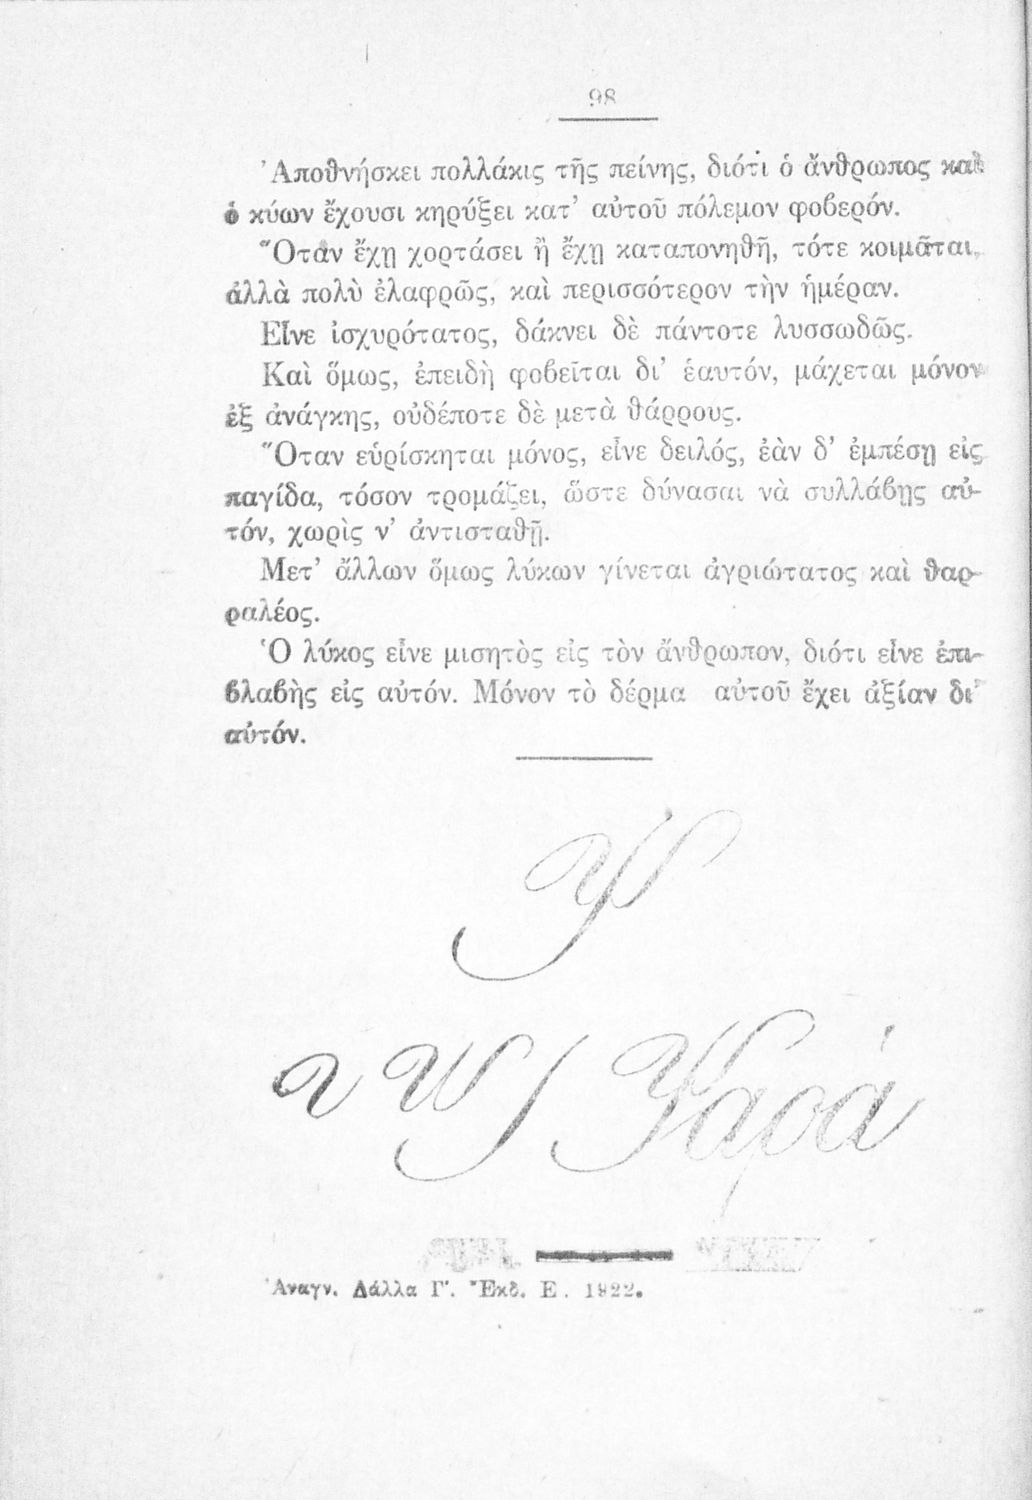 98
Ἀποθνήσκει πολλάκις τῆς πείνης, διότι ὁ ἄνθρωπος καὶ
ὁ κύων ἔχουσι κηρύξει κατ’ αὐτοῦ πόλεμον φοβερόν.
Ὅταν ἔχῃ χορτάσει ἢ ἔχῃ καταπονηθῆ, τότε κοιμᾶται,
ἀλλὰ πολὺ ἐλαφρῶς, καὶ περισσότερον τὴν ἡμέραν.
Εἶνε ἰσχυρότατος, δάκνει δὲ πάντοτε λυσσωδῶς.
Καὶ ὅμως, ἐπειδὴ φοβεῖται δι’ ἑαυτόν, μάχεται μόνον
ἐξ ἀνάγκης, οὐδέποτε δὲ μετὰ θάρρους.
Ὅταν εὑρίσκηται μόνος, εἶνε δειλός, ἐὰν δ’ ἐμπέσῃ εἰς
παγίδα, τόσον τρομάζει, ὥστε δύνασαι νὰ συλλάβῃς αὐ-
τόν, χωρὶς ν’ ἀντισταθῇ.
Μετ’ ἄλλων ὅμως λύκων γίνεται ἀγριώτατος καὶ θαρ-
ραλέος.
Ὁ λύκος εἶνε μισητὸς εἰς τὸν ἄνθρωπον, διότι εἶνε ἐπι-
βλαβὴς εἰς αὐτόν. Μόνον τὸ δέρμα αὐτοῦ ἔχει ἀξίαν δι’
αὐτόν.
Ψ
Ψαρά
Ἀναγν. Δάλλα Γ’. Ἔκδ. Ε. 1922.